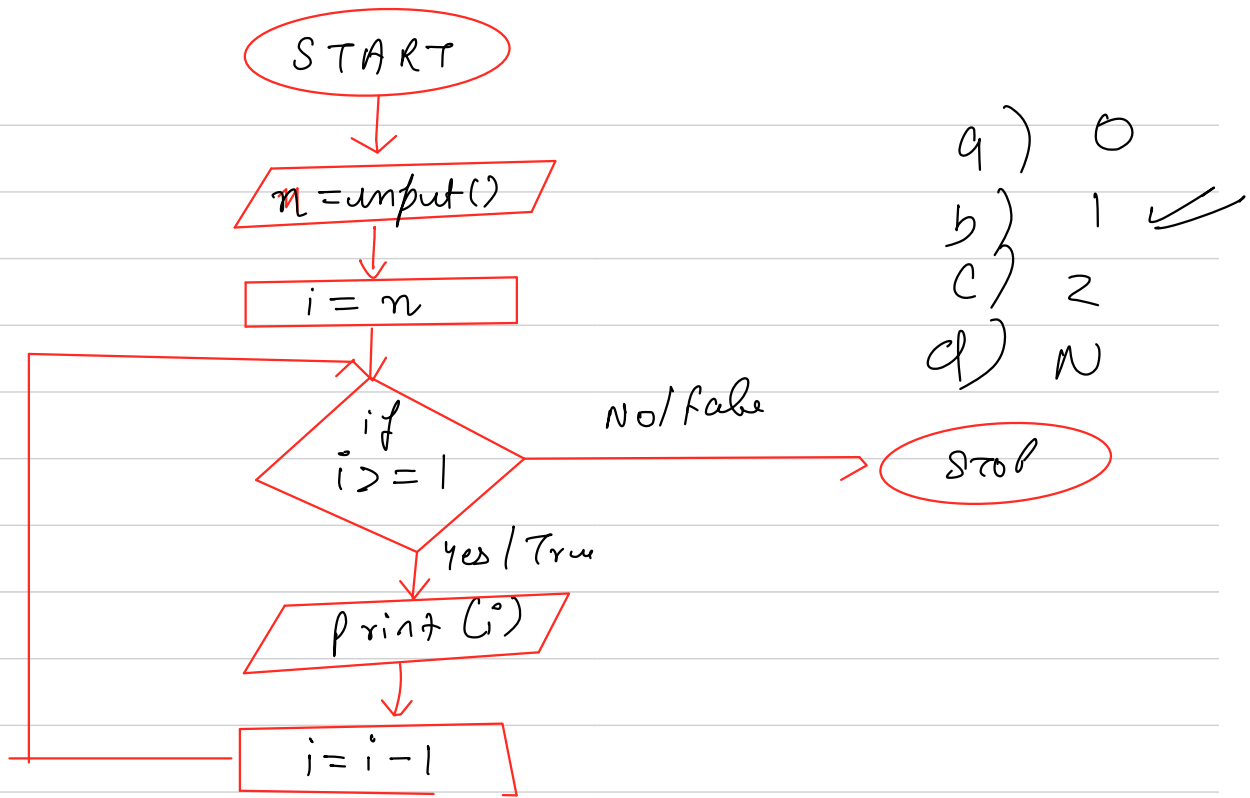 START
n = input()
i = n
if
i >= 1
No/False
STOP
Yes/True
print(i)
i = i - 1
a) 0
b) 1
c) 2
d) N